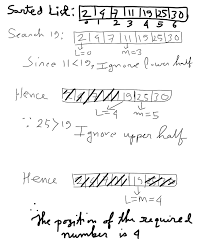 Sorted List: 2 4 7 11 19 25 30
0 1 2 3 4 5 6
Search 19: 2 4 7 11 19 25 30
L=0 m=3
Since 11<19, Ignore lower half
Hence 19 25 30
L=4 m=5
∵ 25>19
Ignore upper half
Hence 19
L=m=4
∴
The position of the required
number is 4